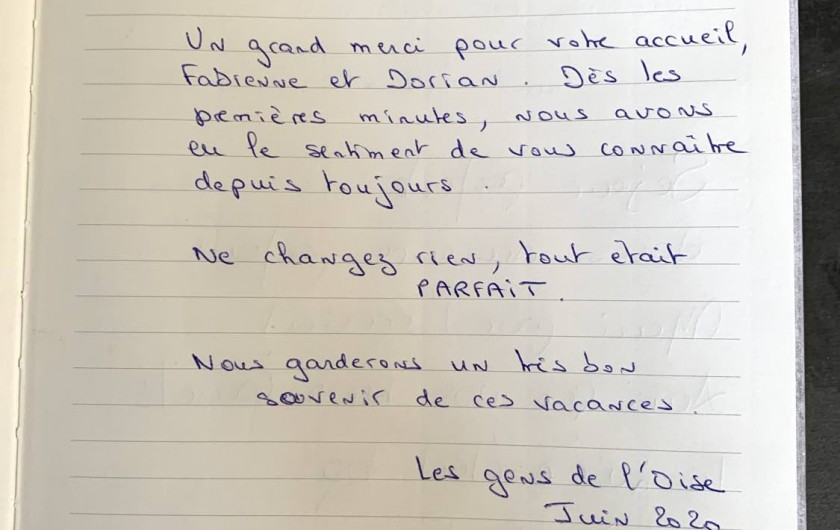 Un grand merci pour votre accueil,
Fabienne et Dorian. Dès les
premières minutes, nous avons
eu le sentiment de vous connaître
depuis toujours.
Ne changez rien, tout était
PARFAiT.
Nous garderons un très bon
souvenir de ces vacances.
Les gens de l'Oise
Juin 2020